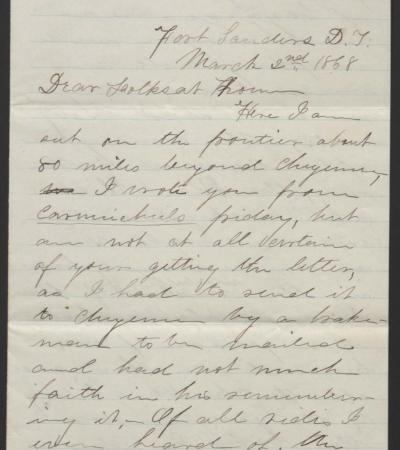 Fort Sanders D.T.
March 2nd 1868
Dear Folks at Home
Here I am
out on the frontier about
80 miles beyond Cheyenne,
I wrote you from
Carmichaels friday, but
am not at all certain
of your getting the letter,
as I had to send it
to Cheyenne by a brake-
man to be mailed
and had not much
faith in his remember-
ing it,- Of all rides I
ever heard of, the